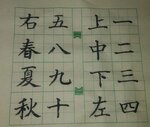 一二三四
上中下左
五八九十
右春夏秋